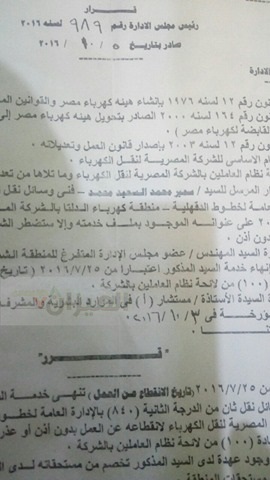 قرار
رئيس مجلس الادارة رقم ٩٨٩ لسنه ٢٠١٦
صادر بتاريخ ٥ / ١٠ / ٢٠١٦
الادارة
ون رقم ١٢ لسنه ١٩٧٦ بإنشاء هيئه كهرباء مصر والقوانين الم
ون رقم ١٦٤ لسنه ٢٠٠٠ الصادر بتحويل هيئه كهرباء مصر إلى
القابضة لكهرباء مصر )
ون رقم ١٢ لسنه ٢٠٠٣ بإصدار قانون العمل وتعديلاته
ام الاساسي للشركة المصرية لنقل الكهرباء
ة نظام العاملين بالشركة المصرية لنقل الكهرباء وما تلاها من تعد
المرسل للسيد / سمير محمد السعيد محمد – فنى وسائل نقل
عامة لخطوط الدقهلية – منطقة كهرباء الدلتا بالشركة الم
على عنوانه الموجود بملف خدمته وإلا ستضطر الش
ون أذن
رة السيد المهندس / عضو مجلس الإدارة المتفرغ للمنطقة الش
إنهاء خدمة السيد المذكور اعتبارا من ٢٠١٦/٧/٢٥ ( تاريخ
(١٠٠) من لائحة نظام العاملين بالشركة
السيدة الأستاذة / مستشار (أ) فى الموارد البشرية والمشرف
ؤرخة فى ٢٠١٦/١٠/٣
قرر
ن ٢٠١٦/٧/٢٥ (تاريخ الانقطاع عن العمل) تنهى خدمة الس
ائل نقل ثان من الدرجة الثانية (٨٤٠) بالإدارة العامة لخطو
المصرية لنقل الكهرباء لانقطاعه عن العمل بدون أذن أو عذر
ادة (١٠٠) من لائحة نظام العاملين بالشركة
وجود عهدة لدى السيد المذكور تخصم من مستحقاته لدى